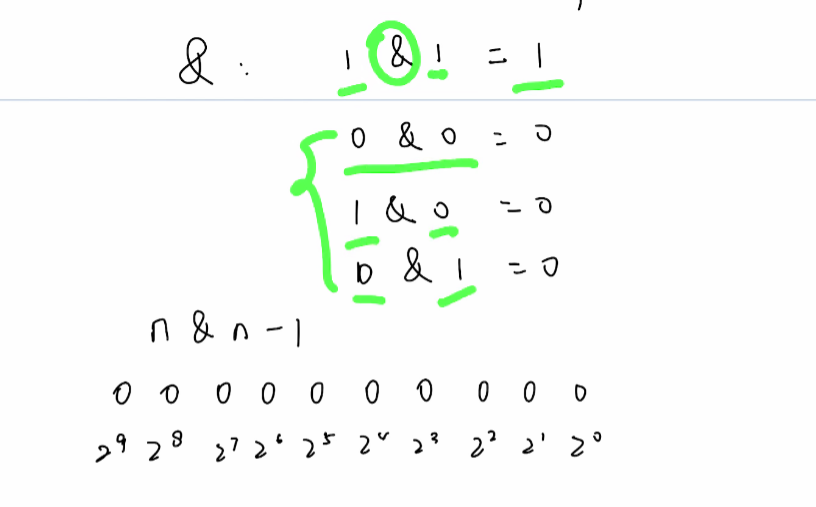 & : 1 & 1 = 1
0 & 0 = 0
1 & 0 = 0
0 & 1 = 0
n & n - 1
0 0 0 0 0 0 0 0 0 0
2⁹ 2⁸ 2⁷ 2⁶ 2⁵ 2⁴ 2³ 2² 2¹ 2⁰